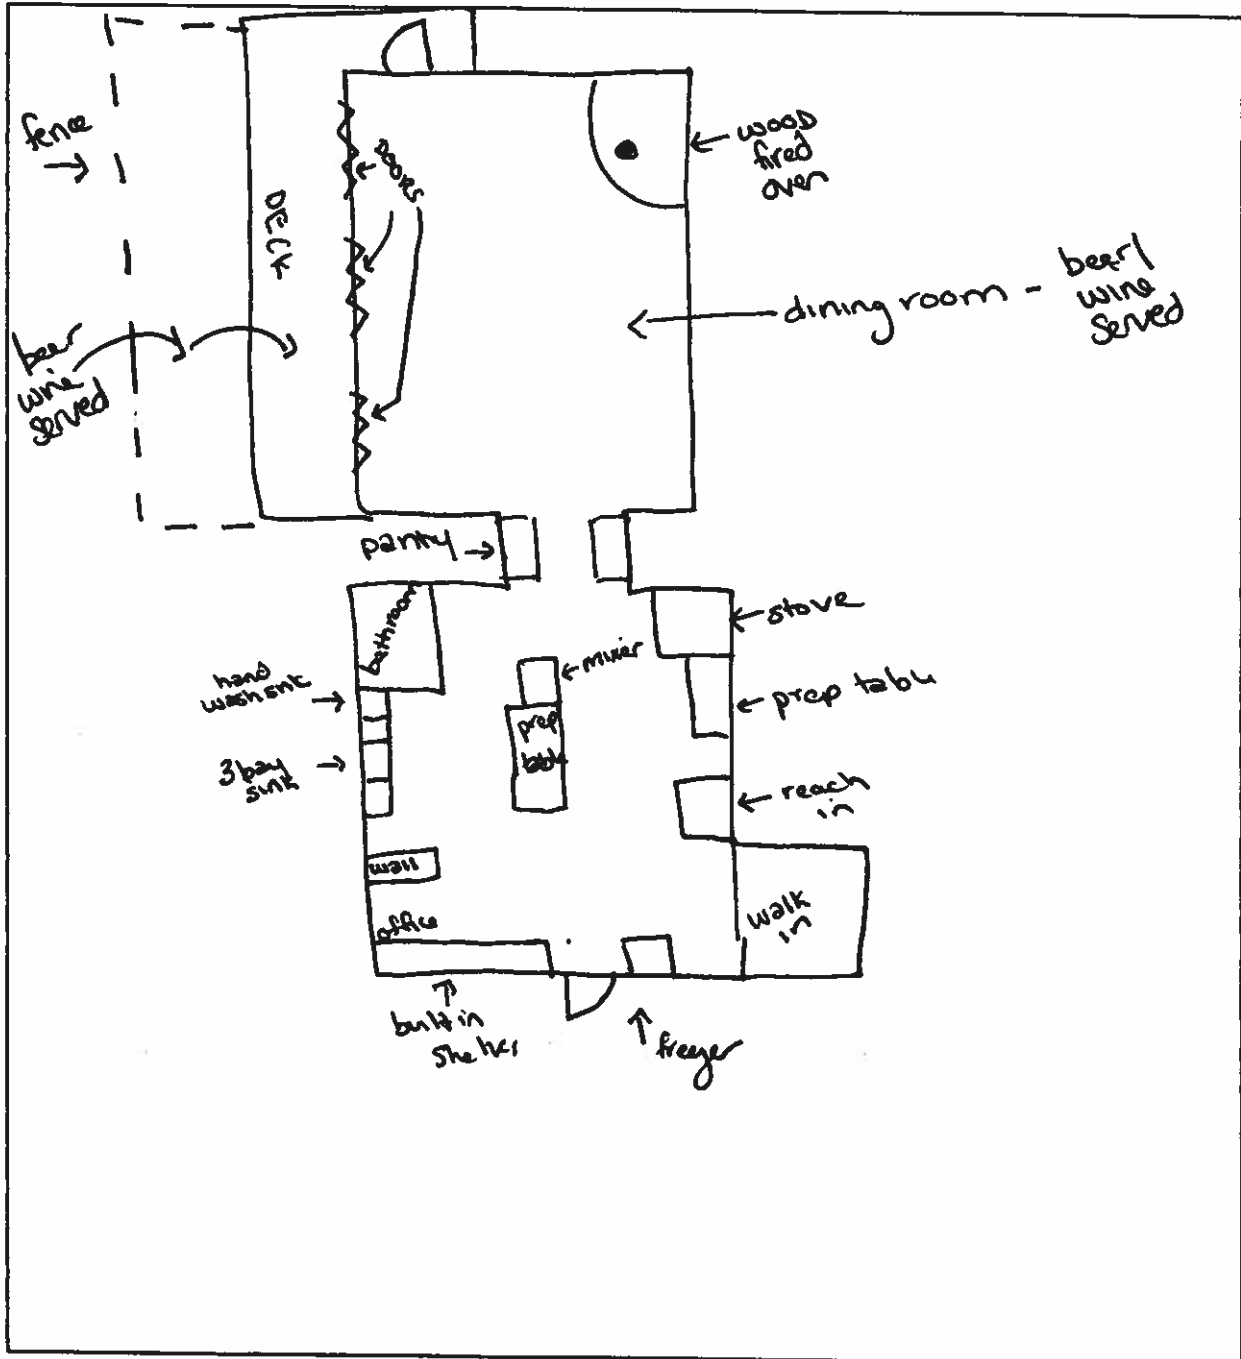 fence
→
DECK
DOORS
wooD
fired
oven
dining room - beer/
wine
served
beer
wine
served
pantry
bathroom
stove
mixer
hand
wash sink
prep table
prep
table
3 bay
sink
reach
in
wall
office
walk
in
built in
shelves
freezer